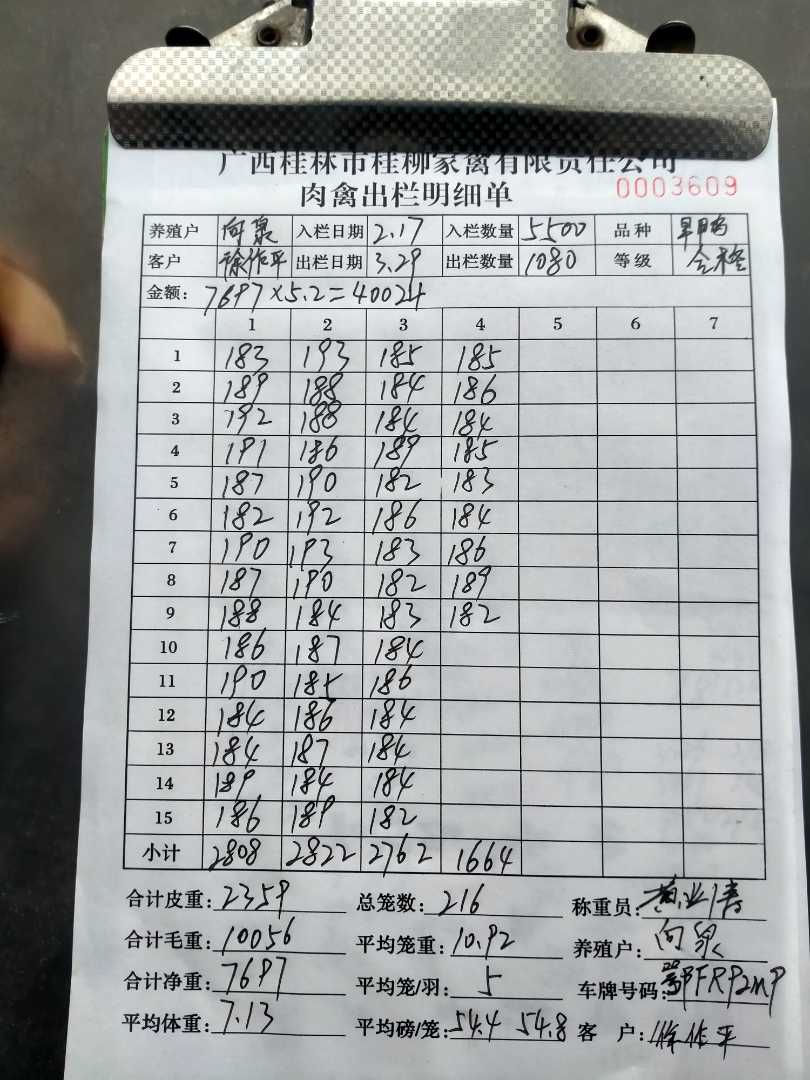 广西桂林市桂柳家禽有限责任公司
肉禽出栏明细单 0003609
养殖户 向泉 入栏日期 2.17 入栏数量 5500 品种
客户 徐作平 出栏日期 3.29 出栏数量 1080 等级 合格
金额: 7697×5.2=40024
1 2 3 4 5 6 7
1 183 193 185 185
2 189 188 184 186
3 192 188 184 184
4 191 186 189 185
5 187 190 182 183
6 182 192 186 184
7 190 193 183 186
8 187 190 182 189
9 188 184 183 182
10 186 187 184
11 190 185 186
12 184 186 184
13 184 187 184
14 189 184 184
15 186 189 182
小计 2808 2822 2762 1664
合计皮重: 2359 总笼数: 216 称重员:
合计毛重: 10056 平均笼重: 10.92 养殖户: 向泉
合计净重: 7697 平均笼/羽: 5 车牌号码:
平均体重: 7.13 平均磅/笼: 54.4 54.8 客 户: 徐作平